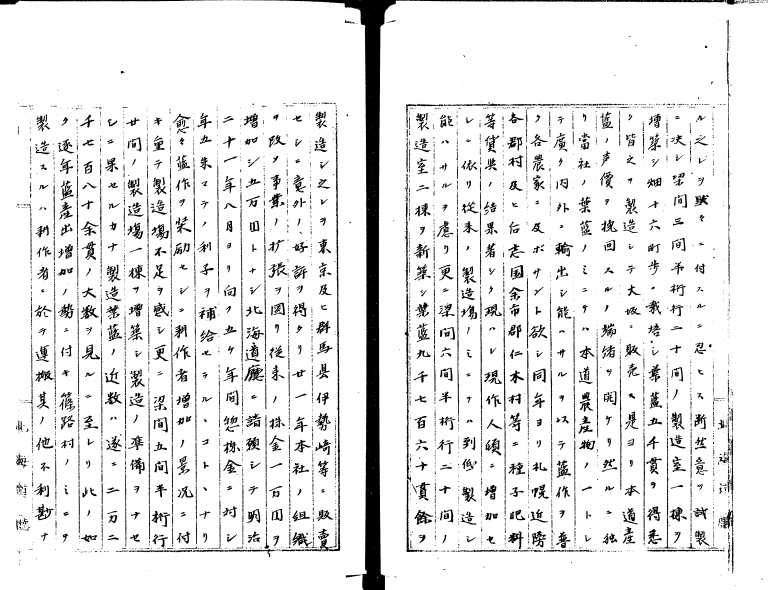 ル之レヲ賦々ニ付スルニ忍ヒス断然意ヲ試製
ニ決シ梁間三間半桁行二十間ノ製造室一棟ヲ
増築シ畑十六町歩ノ栽培シ葉藍五千貫ヲ得悉
ク皆之ヲ製造シテ大坂ニ販売ス是ヨリ本道産
藍ノ声價ヲ挽回スルノ端緒ヲ開ケリ然ルニ独
リ當社ノ葉藍ノミニテハ本道農産物ノ一トシ
テ廣ク内外ニ輸出シ能ハサルヲ以テ藍作ヲ普
ク各農家ニ及ボサント欲シ同年ヨリ札幌近傍
各郡村及ヒ后志国余市郡仁木村等ニ種子肥料
等貸与ノ結果著シク現ハレ現作人頓ニ増加セ
シニ依リ従来ノ製造場ノミニテハ到底製造シ
能ハサルヲ慮リ更ニ梁間六間半桁行二十間ノ
製造室二棟ヲ新築シ葉藍九千七百六十貫餘ヲ
製造シ之レヲ東京及ヒ群馬县伊勢崎等ニ販賣
セシニ意外ノ好評ヲ得タリ廿一年本社ノ組織
ヲ改メ事業ノ扩張ヲ図リ従来ノ株金一万円ヲ
増加シ五万円トナシ北海道廳ニ請願シテ明治
二十一年八月ヨリ向フ五ケ年間惣株金ニ対シ
年五朱マテノ利子ヲ補給セラル、コト、ナリ
愈々藍作ヲ奨励セシニ耕作者増加ノ景况ニ付
キ重テ製造場不足ヲ感シ更ニ梁間五間半桁行
廿間ノ製造場一棟ヲ増築シ製造ノ準備ヲナセ
シニ果セルカナ製造葉藍ノ近数ハ遂ニ二万二
千七百八十余貫ノ大数ヲ見ルニ至レリ此ノ如
ク逐年藍産出増加ノ勢ニ付キ篠路村ノミニテ
製造スルハ耕作者ニ於テ運搬其ノ他不利尠ナ